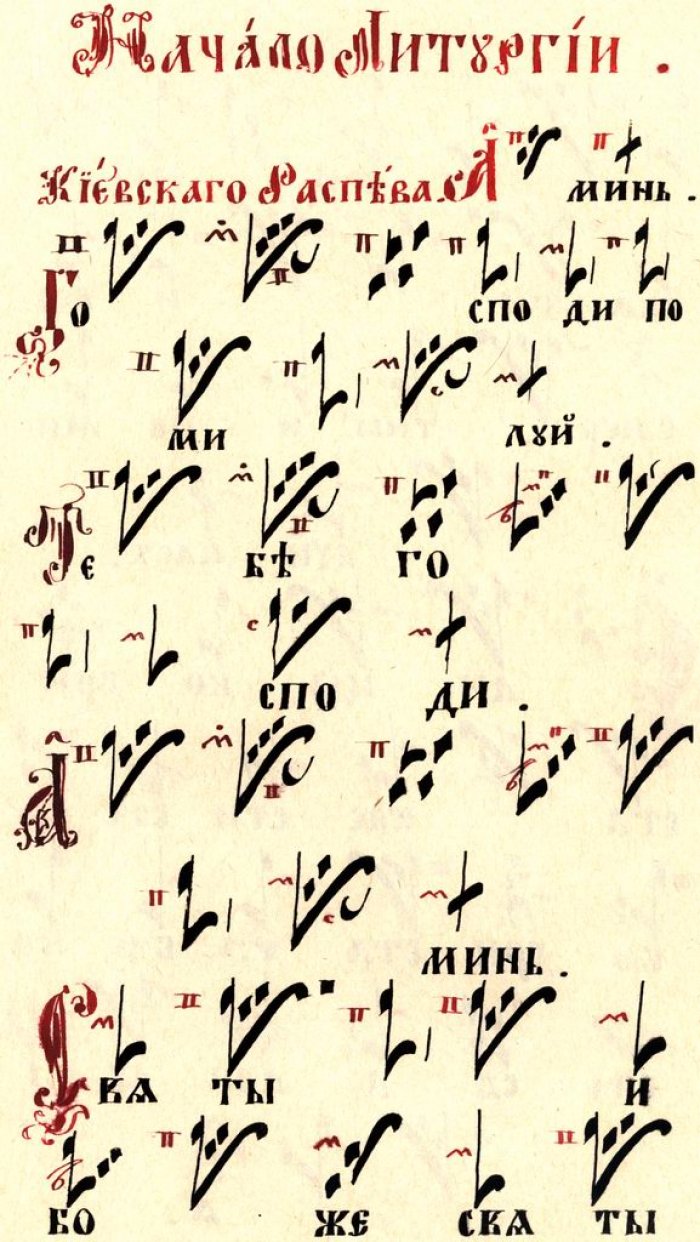 Нача́ло Литꙋргі́и .
Кі́евскаго Распѣ́ва. А̑ минь .
Го спо ди по
ми лꙋй .
Те бѣ го
спо ди .
А̑
минь .
Свя ты и
бо же свя ты